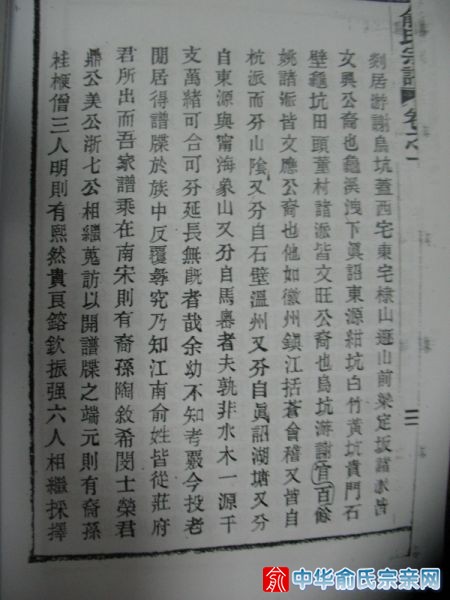 俞氏宗譜 卷之一
剡居游謝烏坑蓋西宅東宅棣山逕山前梁定坂諸派皆
文興公裔也龜溪溲下眞詔東源紺坑白竹黃坑貴門石
壁龜坑田頭董村諸派皆文旺公裔也烏坑游謝官百餘
姚諸派皆文應公裔也他如徽州鎮江括蒼會稽又皆自
杭派而分山陰又分自石壁溫州又分自眞詔湖塘又分
自東源與甯海象山又分自馬嶴者夫孰非水木一源千
支萬緒可合可分延長無旣者哉余幼不知考覈今投老
閒居得譜牒於族中反覆尋究乃知江南俞姓皆從莊府
君所出而吾家譜乘在南宋則有裔孫陶敘希閔士榮君
鼎公美公浙七公相繼蒐訪以開譜牒之端元則有裔孫
桂楩僧三人明則有熙然貴良鎔欽振强六人相繼採擇
俞 中华俞氏宗亲网